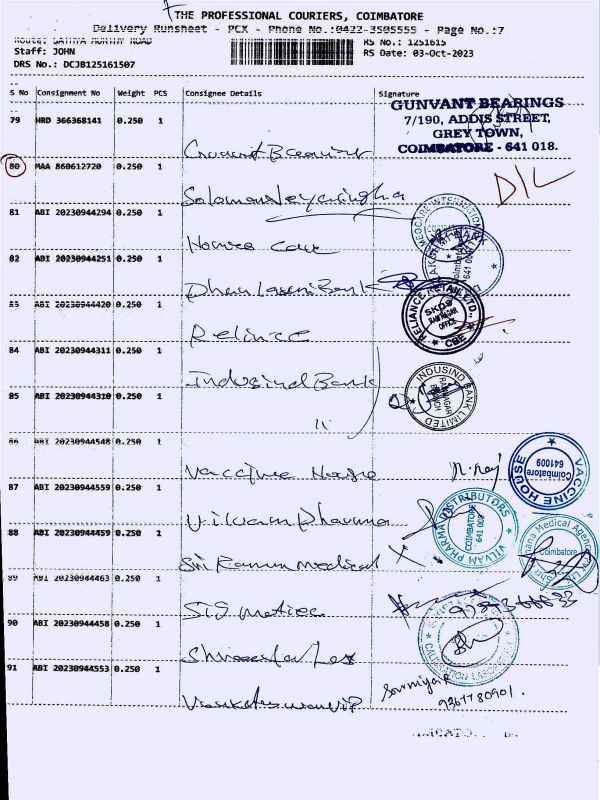 THE PROFESSIONAL COURIERS, COIMBATORE
Delivery Runsheet - PCX - Phone No.:0422-3505555 - Page No.:7
Route: SATHYA MURTHY ROAD
RS No.: 1251615
Staff: JOHN
RS Date: 03-Oct-2023
DRS No.: DCJB125161507
S No Consignment No Weight PCS Consignee Details Signature
GUNVANT BEARINGS
7/190, ADDIS STREET,
GREY TOWN,
COIMBATORE - 641 018.
79 HRD 366368141 0.250 1
80 MAA 860612720 0.250 1
D/L
81 ABI 20230944294 0.250 1
82 ABI 20230944251 0.250 1
Dhanlaxmi Bank
83 ABI 20230944420 0.250 1
RELIANCE RETAIL LTD.,
CBE
Reliance
84 ABI 20230944311 0.250 1
Indusind Bank
INDUSIND BANK LIMITED
RAMNAGAR
BRANCH
85 ABI 20230944310 0.250 1
11
86 ABI 20230944548 0.250 1
Vaccine House
VACCINE HOUSE
Coimbatore
641009
87 ABI 20230944559 0.250 1
Vilvam Pharma
VILVAM PHARMA DISTRIBUTORS
COIMBATORE
88 ABI 20230944459 0.250 1
Medical
Coimbatore
89 ABI 20230944463 0.250 1
90 ABI 20230944458 0.250 1
91 ABI 20230944553 0.250 1
Sowmiya R
9367780901.